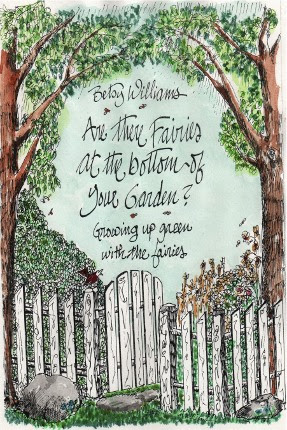 Betsy Williams
Are there Fairies
at the bottom of
Your Garden?
Growing up green
with the fairies